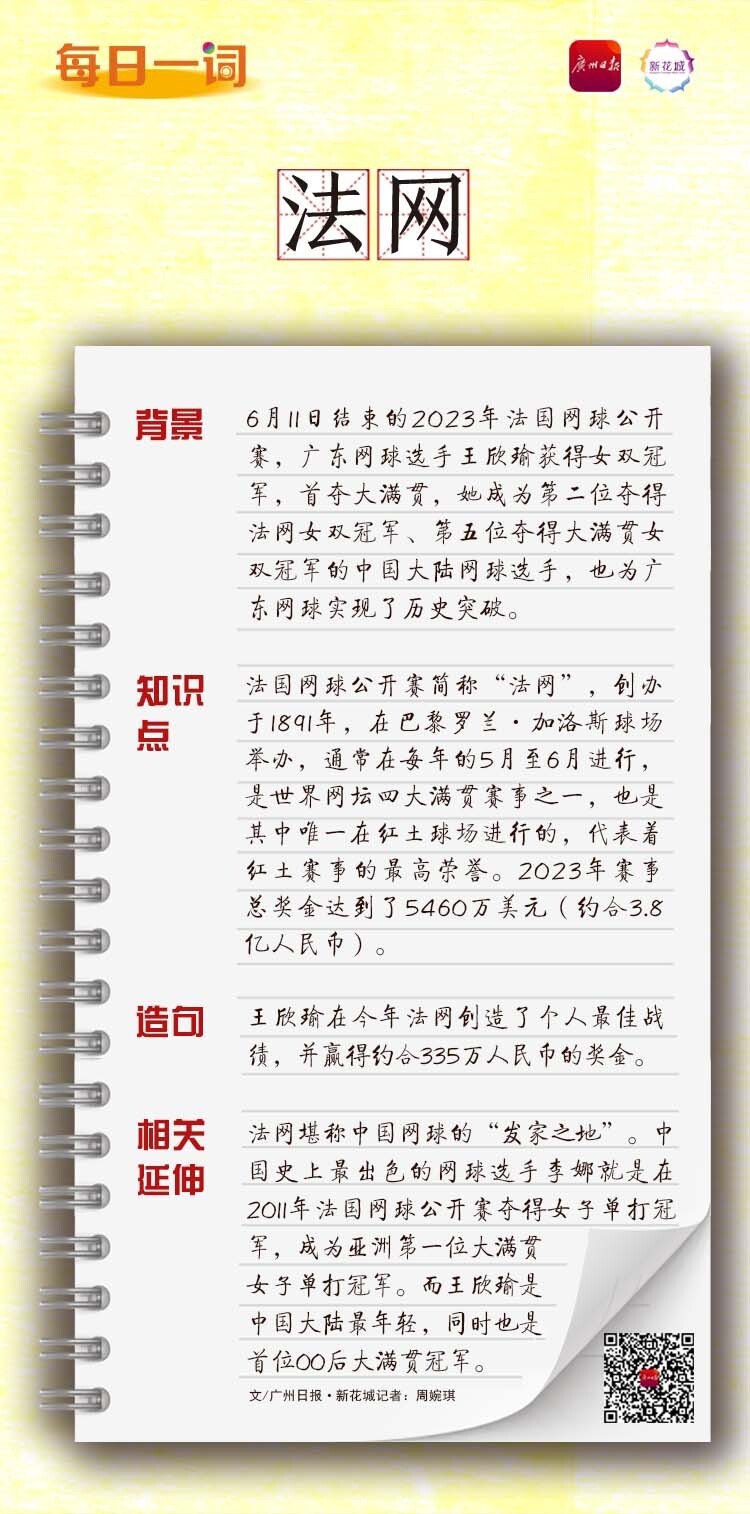 每日一词
广州日报
新花城
法网
背景
6月11日结束的2023年法国网球公开
赛，广东网球选手王欣瑜获得女双冠
军，首夺大满贯，她成为第二位夺得
法网女双冠军、第五位夺得大满贯女
双冠军的中国大陆网球选手，也为广
东网球实现了历史突破。
知识
点
法国网球公开赛简称“法网”，创办
于1891年，在巴黎罗兰·加洛斯球场
举办，通常在每年的5月至6月进行，
是世界网坛四大满贯赛事之一，也是
其中唯一在红土球场进行的，代表着
红土赛事的最高荣誉。2023年赛事
总奖金达到了5460万美元（约合3.8
亿人民币）。
造句
王欣瑜在今年法网创造了个人最佳战
绩，并赢得约合335万人民币的奖金。
相关
延伸
法网堪称中国网球的“发家之地”。中
国史上最出色的网球选手李娜就是在
2011年法国网球公开赛夺得女子单打冠
军，成为亚洲第一位大满贯
女子单打冠军。而王欣瑜是
中国大陆最年轻，同时也是
首位00后大满贯冠军。
文/广州日报·新花城记者：周婉琪